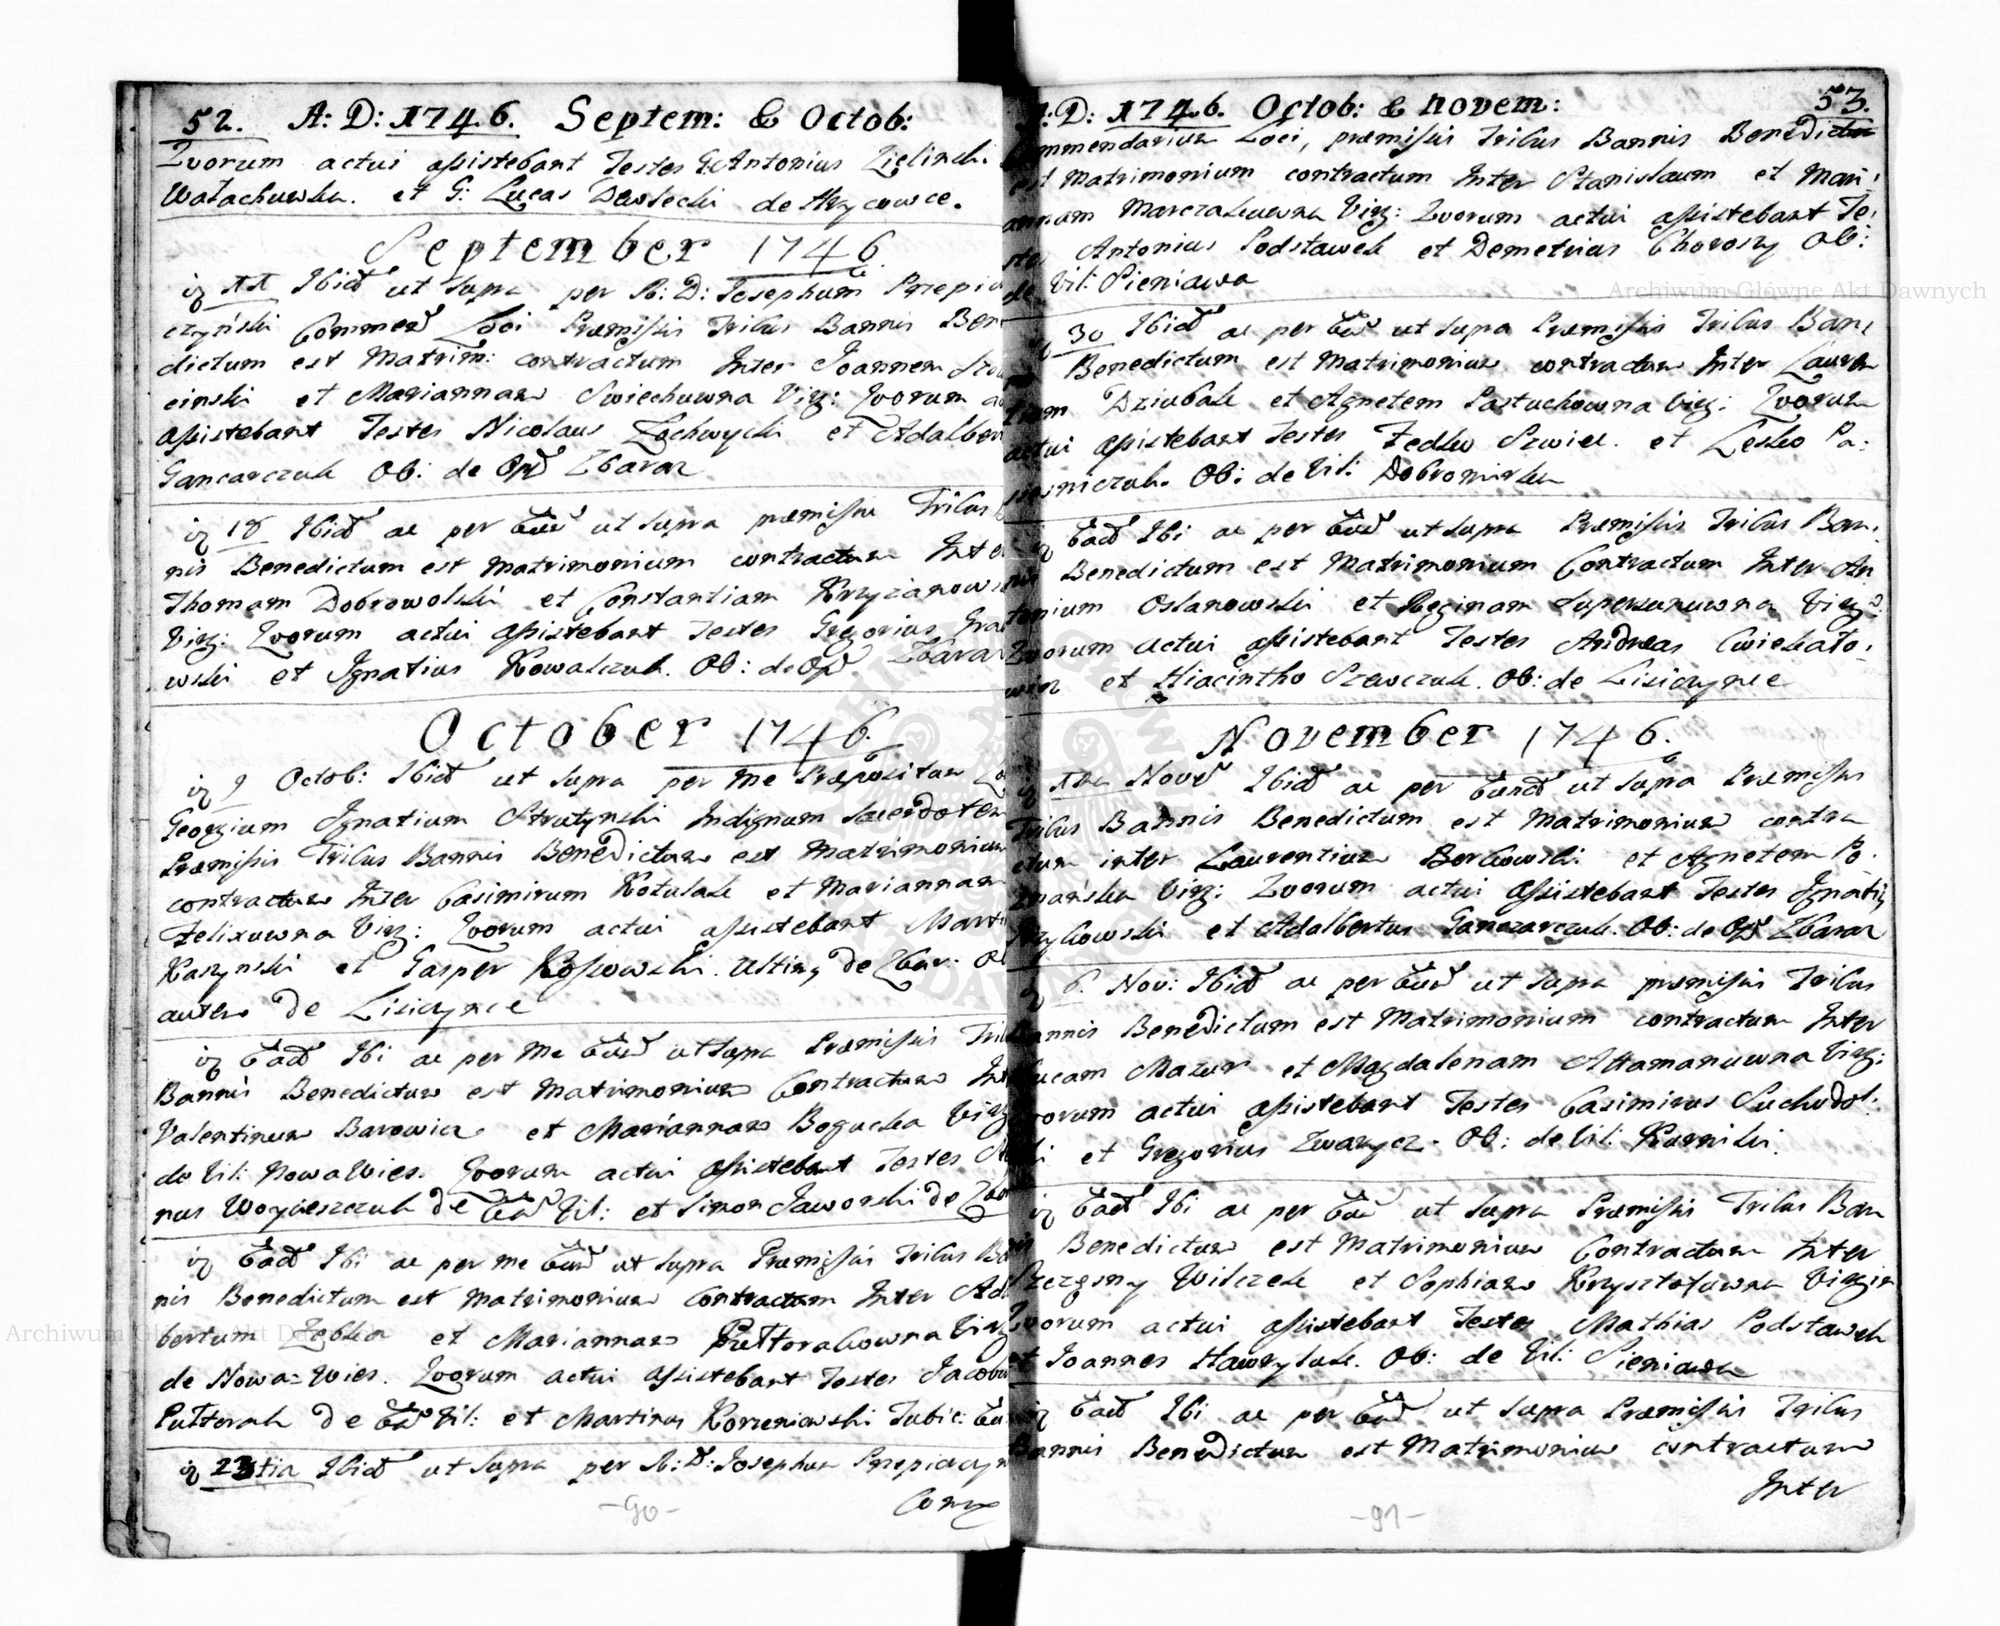 52. A: D: 1746. Septem: & Octob:
Quorum actui assistebant Testes G: Antonius Zielinski
Wołachuwka. et G: Lucas Dewlecki de Hrycowce.
September 1746
11 Ibid ut supra per A: D: Josephum Przepiu
czyński Commend Loci Præmissis Tribus Bannis Ben
dictum est Matrim: contractum Inter Joannem
cinski et Mariannam Swiechuwna Virg: Quorum ac
assistebant Testes Nicolaus Zachwycki et Adalber
Gancarczuk Ob: de Opd Zbaraz
18 Ibid ac per Eund ut supra præmissis Tribus
nis Benedictum est Matrimonium contractum Inte
Thomam Dobrowolski et Constantiam Krzyzanows
Virg: Quorum actui assistebant Testes Gregorius Gra
wski et Ignatius Kowalczuk. Ob: de Opd Zbaraz
October 1746.
9 Octob: Ibid ut supra per me Præpositum
Georgium Ignatium Strutynski Indignum Sacerdotem
Præmissis Tribus Bannis Benedictum est Matrimonium
contractum Inter Casimirum Kotulak et Mariannam
Felixuwna Virg: Quorum actui assistebant Marti
Kaszynski et Gasper Kossowski. Ustin, de Zbar: Ob
autem de Lisiczynce
Ead Ibi ac per Me Eund ut supra Præmissis Trib
Bannis Benedictum est Matrimonium Contractum Int
Valentinum Barowicz et Mariannam Bogucka Virg
de Vil: Nowa Wies. Quorum actui assistebant Testes
nus Woycieszczuk de Ead Vil: et Simon Jaworski de Zbar
Ead Ibi ac per me Eund ut supra Præmissis Tribus Ban
nis Benedictum est Matrimonium Contractum Inter Adal
bertum Zębka et Mariannam Putторakowna Virg
de Nowa=Wies. Quorum actui assistebant Testes Jacobu
Puttorak de Ead Vil: et Martinus Korzeniowski
23tia Ibid ut supra per A: D: Josephum Przepiuczyn
Com
-90-
A: D: 1746. Octob: & Novem: 53.
ommendarium Loci, præmissis Tribus Bannis Benedictum
est Matrimonium contractum Inter Stanislaum et Mari
annam Marczakuwna Virg: Quorum actui assistebant Te,
stes Antonius Podstawek et Demetrius Choroszy Ob:
de Vil: Pieniawa
30 Ibid ac per Eund ut supra Præmissis Tribus Ban,
nis Benedictum est Matrimonium contractum Inter Lauren
tium Dziubak et Agnetem Pastuchowna Virg: Quorum
actui assistebant Testes Fedko Szwiec. et Lesko Pa:
siesniczuk. Ob: de Vil: Dobromirka
Ead Ibi ac per Eund ut supra Præmissis Tribus Ban,
nis Benedictum est Matrimonium Contractum Inter An
tonium Oslanowski et Reginam Supersunuwna Virg:
Quorum actui assistebant Testes Andreas
et Hiacintho Szewczuk. Ob: de Lisiczynce
November 1746.
1ma Novb Ibid ac per Eund ut supra Præmissis
Tribus Bannis Benedictum est Matrimonium contra
ctum inter Laurentium Borkowski et Agnetem Po
znańska Virg: Quorum actui assistebant Testes Ignati,
Szykowski et Adalbertus Gancarczuk. Ob: de Opd Zbaraz
6. Nov: Ibid ac per Eund ut supra præmissis Tribus
Bannis Benedictum est Matrimonium contractum Inter
Lucam Mazur et Magdalenam Attamanuwna Virg:
Quorum actui assistebant Testes Casimirus Suchodol:
ski et Gregorius Zwarycz. Ob: de Vil: Kurniki.
Ead Ibi ac per Eund ut supra Præmissis Tribus Ban
nis Benedictum est Matrimonium Contractum Inter
Szczęsny Wilczek et Sophiam Krzysztofuwna Virgin
Quorum actui assistebant Testes Mathias Podstawek
et Joannes Hawryluk. Ob: de Vil: Pieniawa
Ead Ibi ac per Eund ut supra Præmissis Tribus
Bannis Benedictum est Matrimonium contractum
Inter
-91-
Archiwum Główne Akt Dawnych
Archiwum Główne Akt Dawnych